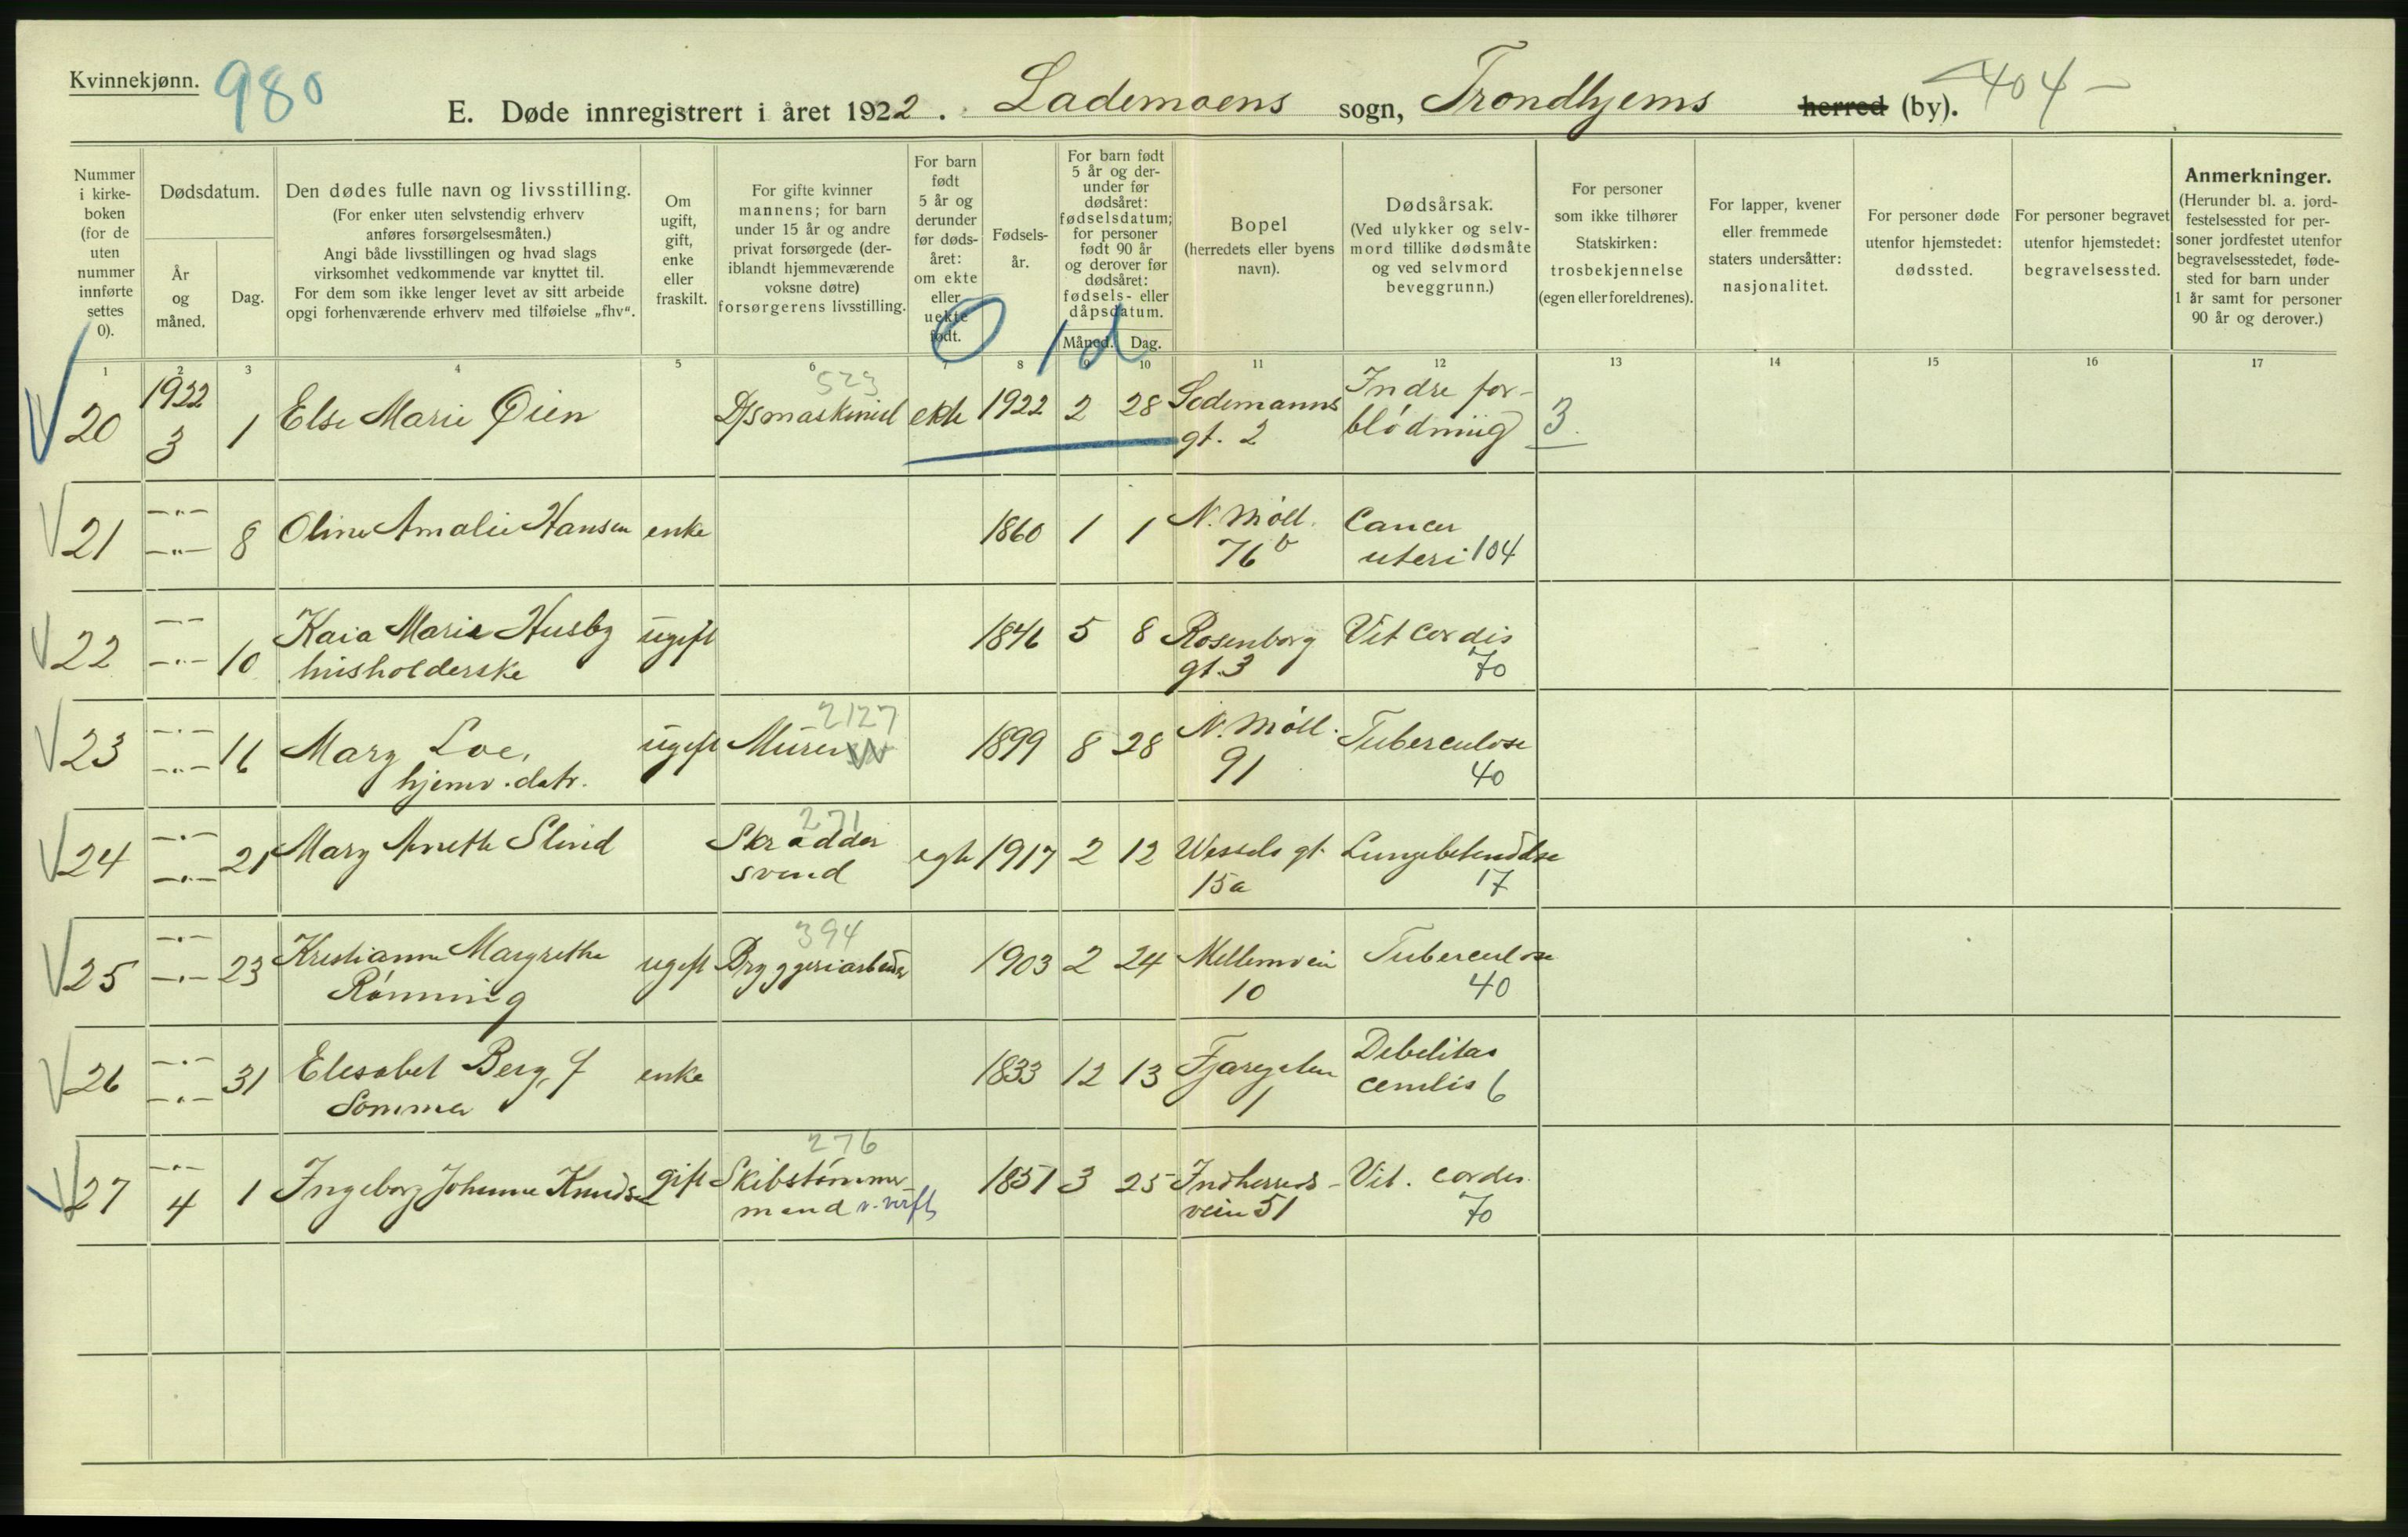 Kvinnekjønn.
980
E. Døde innregistrert i året 1922. Lademoens sogn, Trondhjems herred (by).
404 —
Nummer i kirke-boken (for de uten nummer innførte settes 0).
Dødsdatum.
År og måned.
Dag.
Den dødes fulle navn og livsstilling.
(For enker uten selvstendig erhverv
anføres forsørgelsesmåten.)
Angi både livsstillingen og hvad slags
virksomhet vedkommende var knyttet til.
For dem som ikke lenger levet av sitt arbeide
opgi forhenværende erhverv med tilføielse „fhv“.
Om ugift, gift, enke eller fraskilt.
For gifte kvinner
mannens; for barn
under 15 år og andre
privat forsørgede (der-
iblandt hjemmeværende
voksne døtre)
forsørgerens livsstilling.
For barn
født
5 år og
derunder
før døds-
året:
om ekte
eller
uekte
født.
Fødsels-
år.
For barn født
5 år og der-
under før
dødsåret:
fødselsdatum;
for personer
født 90 år
og derover før
dødsåret:
fødsels- eller
dåpsdatum.
Måned. Dag.
Bopel
(herredets eller byens
navn).
Dødsårsak.
(Ved ulykker og selv-
mord tillike dødsmåte
og ved selvmord
beveggrunn.)
For personer
som ikke tilhører
Statskirken:
trosbekjennelse
(egen eller foreldrenes).
For lapper, kvener
eller fremmede
staters undersåtter:
nasjonalitet.
For personer døde
utenfor hjemstedet:
dødssted.
For personer begravet
utenfor hjemstedet:
begravelsessted.
Anmerkninger.
(Herunder bl. a. jord-
festelsessted for per-
soner jordfestet utenfor
begravelsesstedet, føde-
sted for barn under
1 år samt for personer
90 år og derover.)
0 1 d
1 2 3 4 5 6 7 8 9 10 11 12 13 14 15 16 17
523
20 1922 3 1 Else Marie Øien D/s maskinist ekte 1922 2 28 Sodemanns gt. 2 Indre for-blødning 3.
21 —"— —"— 8 Oline Amalie Hansen enke 1860 1 1 N. Møll. 76 b Cancer uteri 104
22 —"— —"— 10 Kaia Marie Husby husholderske ugift 1846 5 8 Rosenborg gt. 3 Vit cordis 70
2127
23 —"— —"— 16 Mary Loe, hjemv. datr. ugift Murer 1899 8 28 N. Møll. 91 Tuberculose 40
271
24 —"— —"— 21 Mary Anette Slind Skrædder svend egte 1917 2 12 Wessels gt. 15a Lungebetendelse 17
394
25 —"— —"— 23 Kristianne Margrethe Rønning ugift Bryggeriarbeider 1903 2 24 Mellemvein 10 Tuberculose 40
26 —"— —"— 31 Elesabet Berg, f Sommer enke 1833 12 13 Fjæregaten 1 Debelitas cenilis 6
276
27 —"— 4 1 Ingeborg Johanne Knudsen gift Skibstømmer mand v. verft 1851 3 25 Indherreds-vein 51 Vit. cordis 70